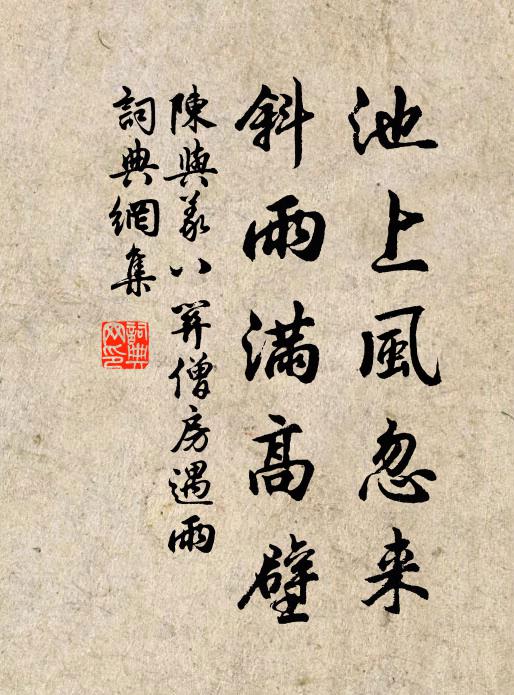 池上風忽来
斜雨满高壁
陳與義八關僧房遇雨
詞典網集
詞典
网印